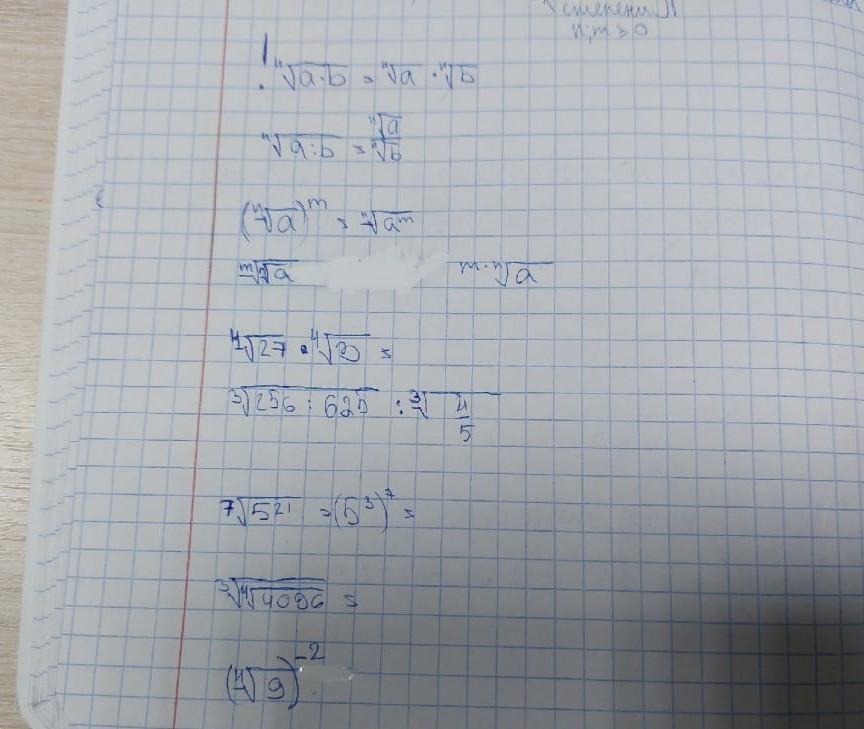 степени
n; m ≥ 0
! ⁿ√(a·b) = ⁿ√a · ⁿ√b
ⁿ√(a:b) = ⁿ√a / ⁿ√b
(ⁿ√a)ᵐ = ⁿ√(aᵐ)
ᵐ√(ⁿ√a) ᵐ·ⁿ√a
⁴√27 · ⁴√30 =
³√(256 : 625) : ³√(4/5)
⁷√(5²¹) = (5³)⁷ =
³√(⁴√4096) =
(⁴√9)⁻²